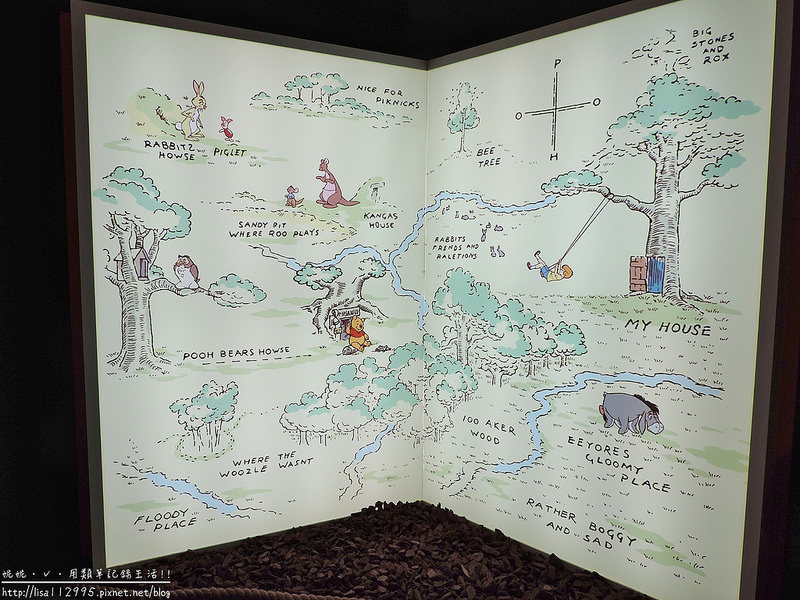 NICE FOR
PIKNICKS
RABBITS
HOWSE
PIGLET
SANDY PIT
WHERE ROO PLAYS
KANGAS
HOUSE
POOH BEARS HOWSE
WHERE THE
WOOZLE WASNT
FLOODY
PLACE
BIG
STONES
AND
ROX
P
O
O
H
BEE
TREE
RABBITS
FRENDS AND
RALETIONS
MY HOUSE
100 AKER
WOOD
EEYORES
GLOOMY
PLACE
RATHER BOGGY
AND SAD
姚姚‧ˇ‧用類單記錄生活!!
http://lisa112995.pixnet.net/blog